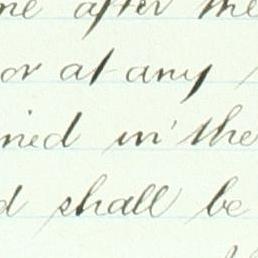 me after the
or at any
ned in the
d shall be